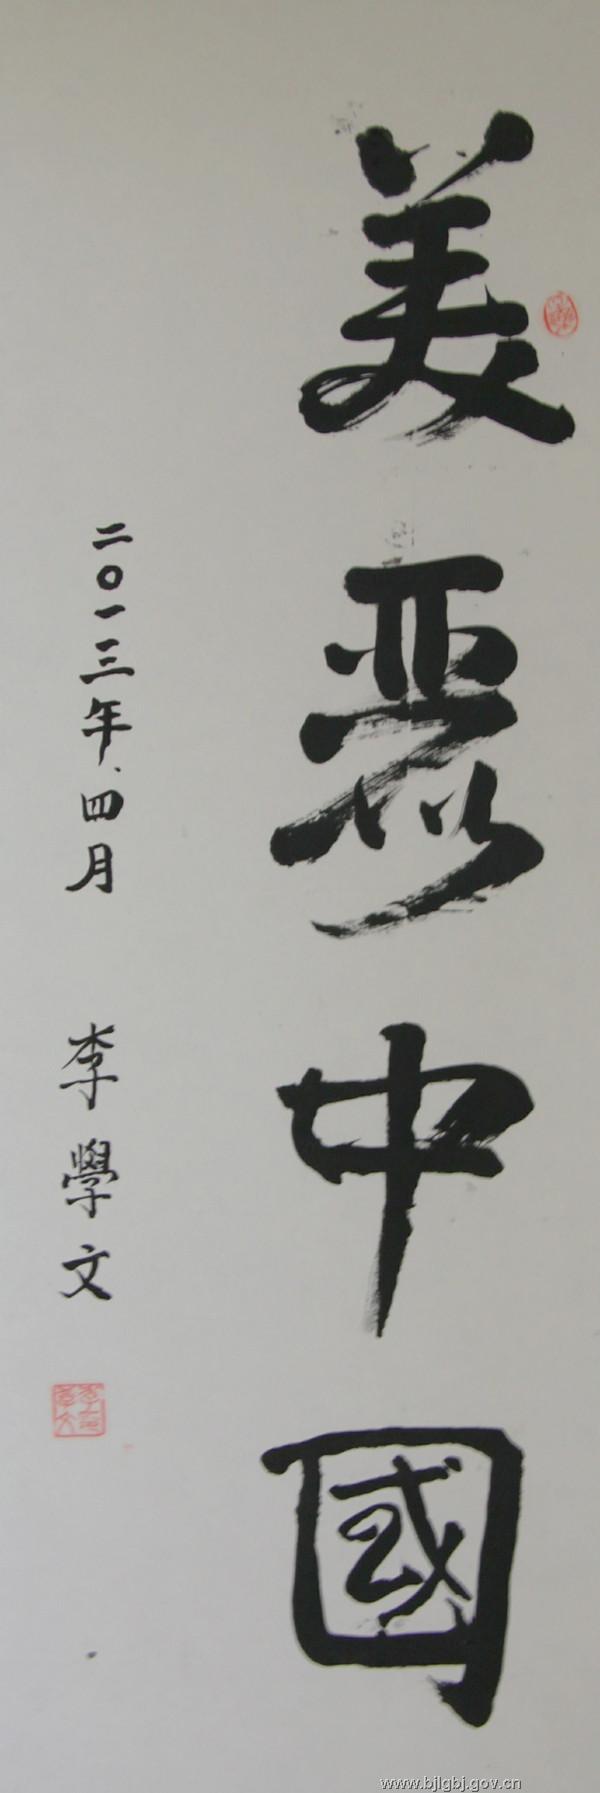 美麗中國
二〇一三年、四月 李學文
www.bjlgbj.gov.cn